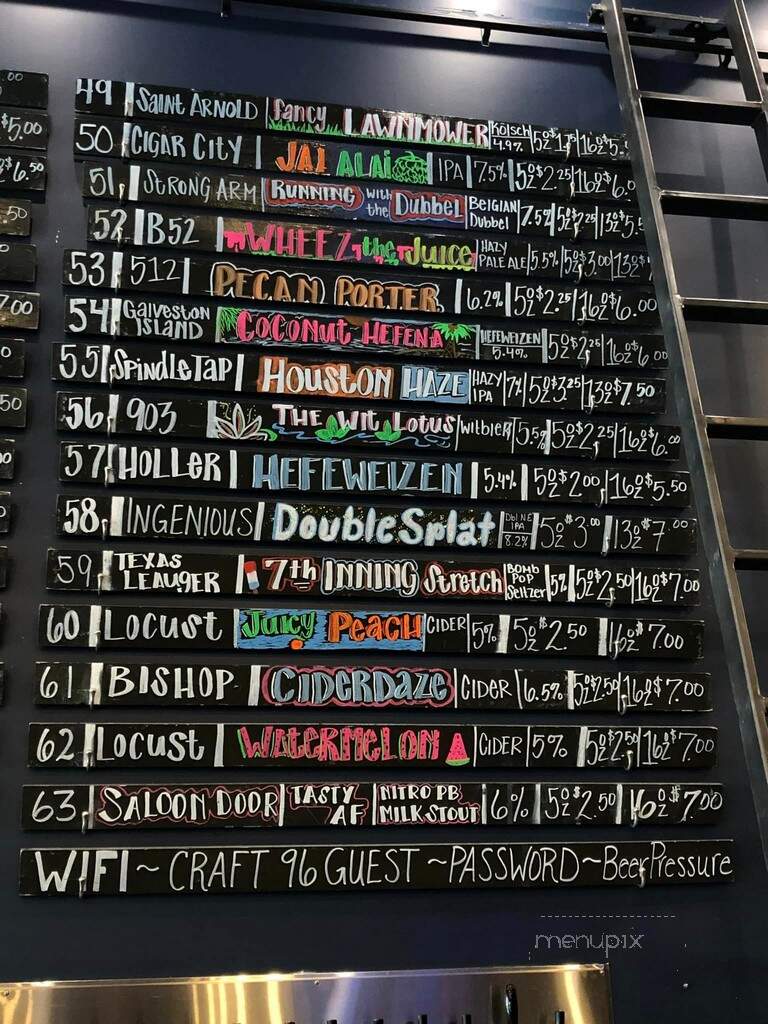 .00
49 Saint Arnold fancy LAWNMOWER Kölsch 4.9% 5oz $1.75 16oz $5.
$5.00
50 CIGAR CITY JAI ALAI IPA 7.5% 5oz $2.25 16oz $6.0
$6.50
51 STRONG ARM RUNNING with the Dubbel BELGIAN Dubbel 7.5% 5oz $2.25 13oz $5.5
.50
52 B52 WHEEZ the Juice HAZY PALE ALE 5.5% 5oz $3.00 13oz $
53 512 PECAN PORTER 6.2% 5oz $2.25 16oz $6.00
7.00
54 GALVESTON ISLAND COCONUT HEFENA HEFEWEIZEN 5.4% 5oz $2.25 16oz $6.00
55 SPINDLETAP HOUSTON HAZE HAZY IPA 7% 5oz $3.25 13oz $7.50
50
56 903 THE WIT LOTUS Witbier 5.5% 5oz $2.25 16oz $6.00
57 HOLLER HEFEWEIZEN 5.4% 5oz $2.00 16oz $5.50
58 INGENIOUS Double Splat Dbl NE IPA 8.2% 5oz $3.00 13oz $7.00
59 TEXAS LEAUGER 7th INNING Stretch BOMB POP Seltzer 5% 5oz $2.50 16oz $7.00
60 LOCUST Juicy PEACH CIDER 5% 5oz $2.50 16oz $7.00
61 BISHOP CIDERDAZE CIDER 6.5% 5oz $2.50 16oz $7.00
62 LOCUST WATERMELON CIDER 5% 5oz $2.50 16oz $7.00
63 SALOON DOOR TASTY AF NITRO PB MILK STOUT 6% 5oz $2.50 16oz $7.00
WIFI ~ CRAFT 96 GUEST ~ PASSWORD ~ BeerPressure
menupix